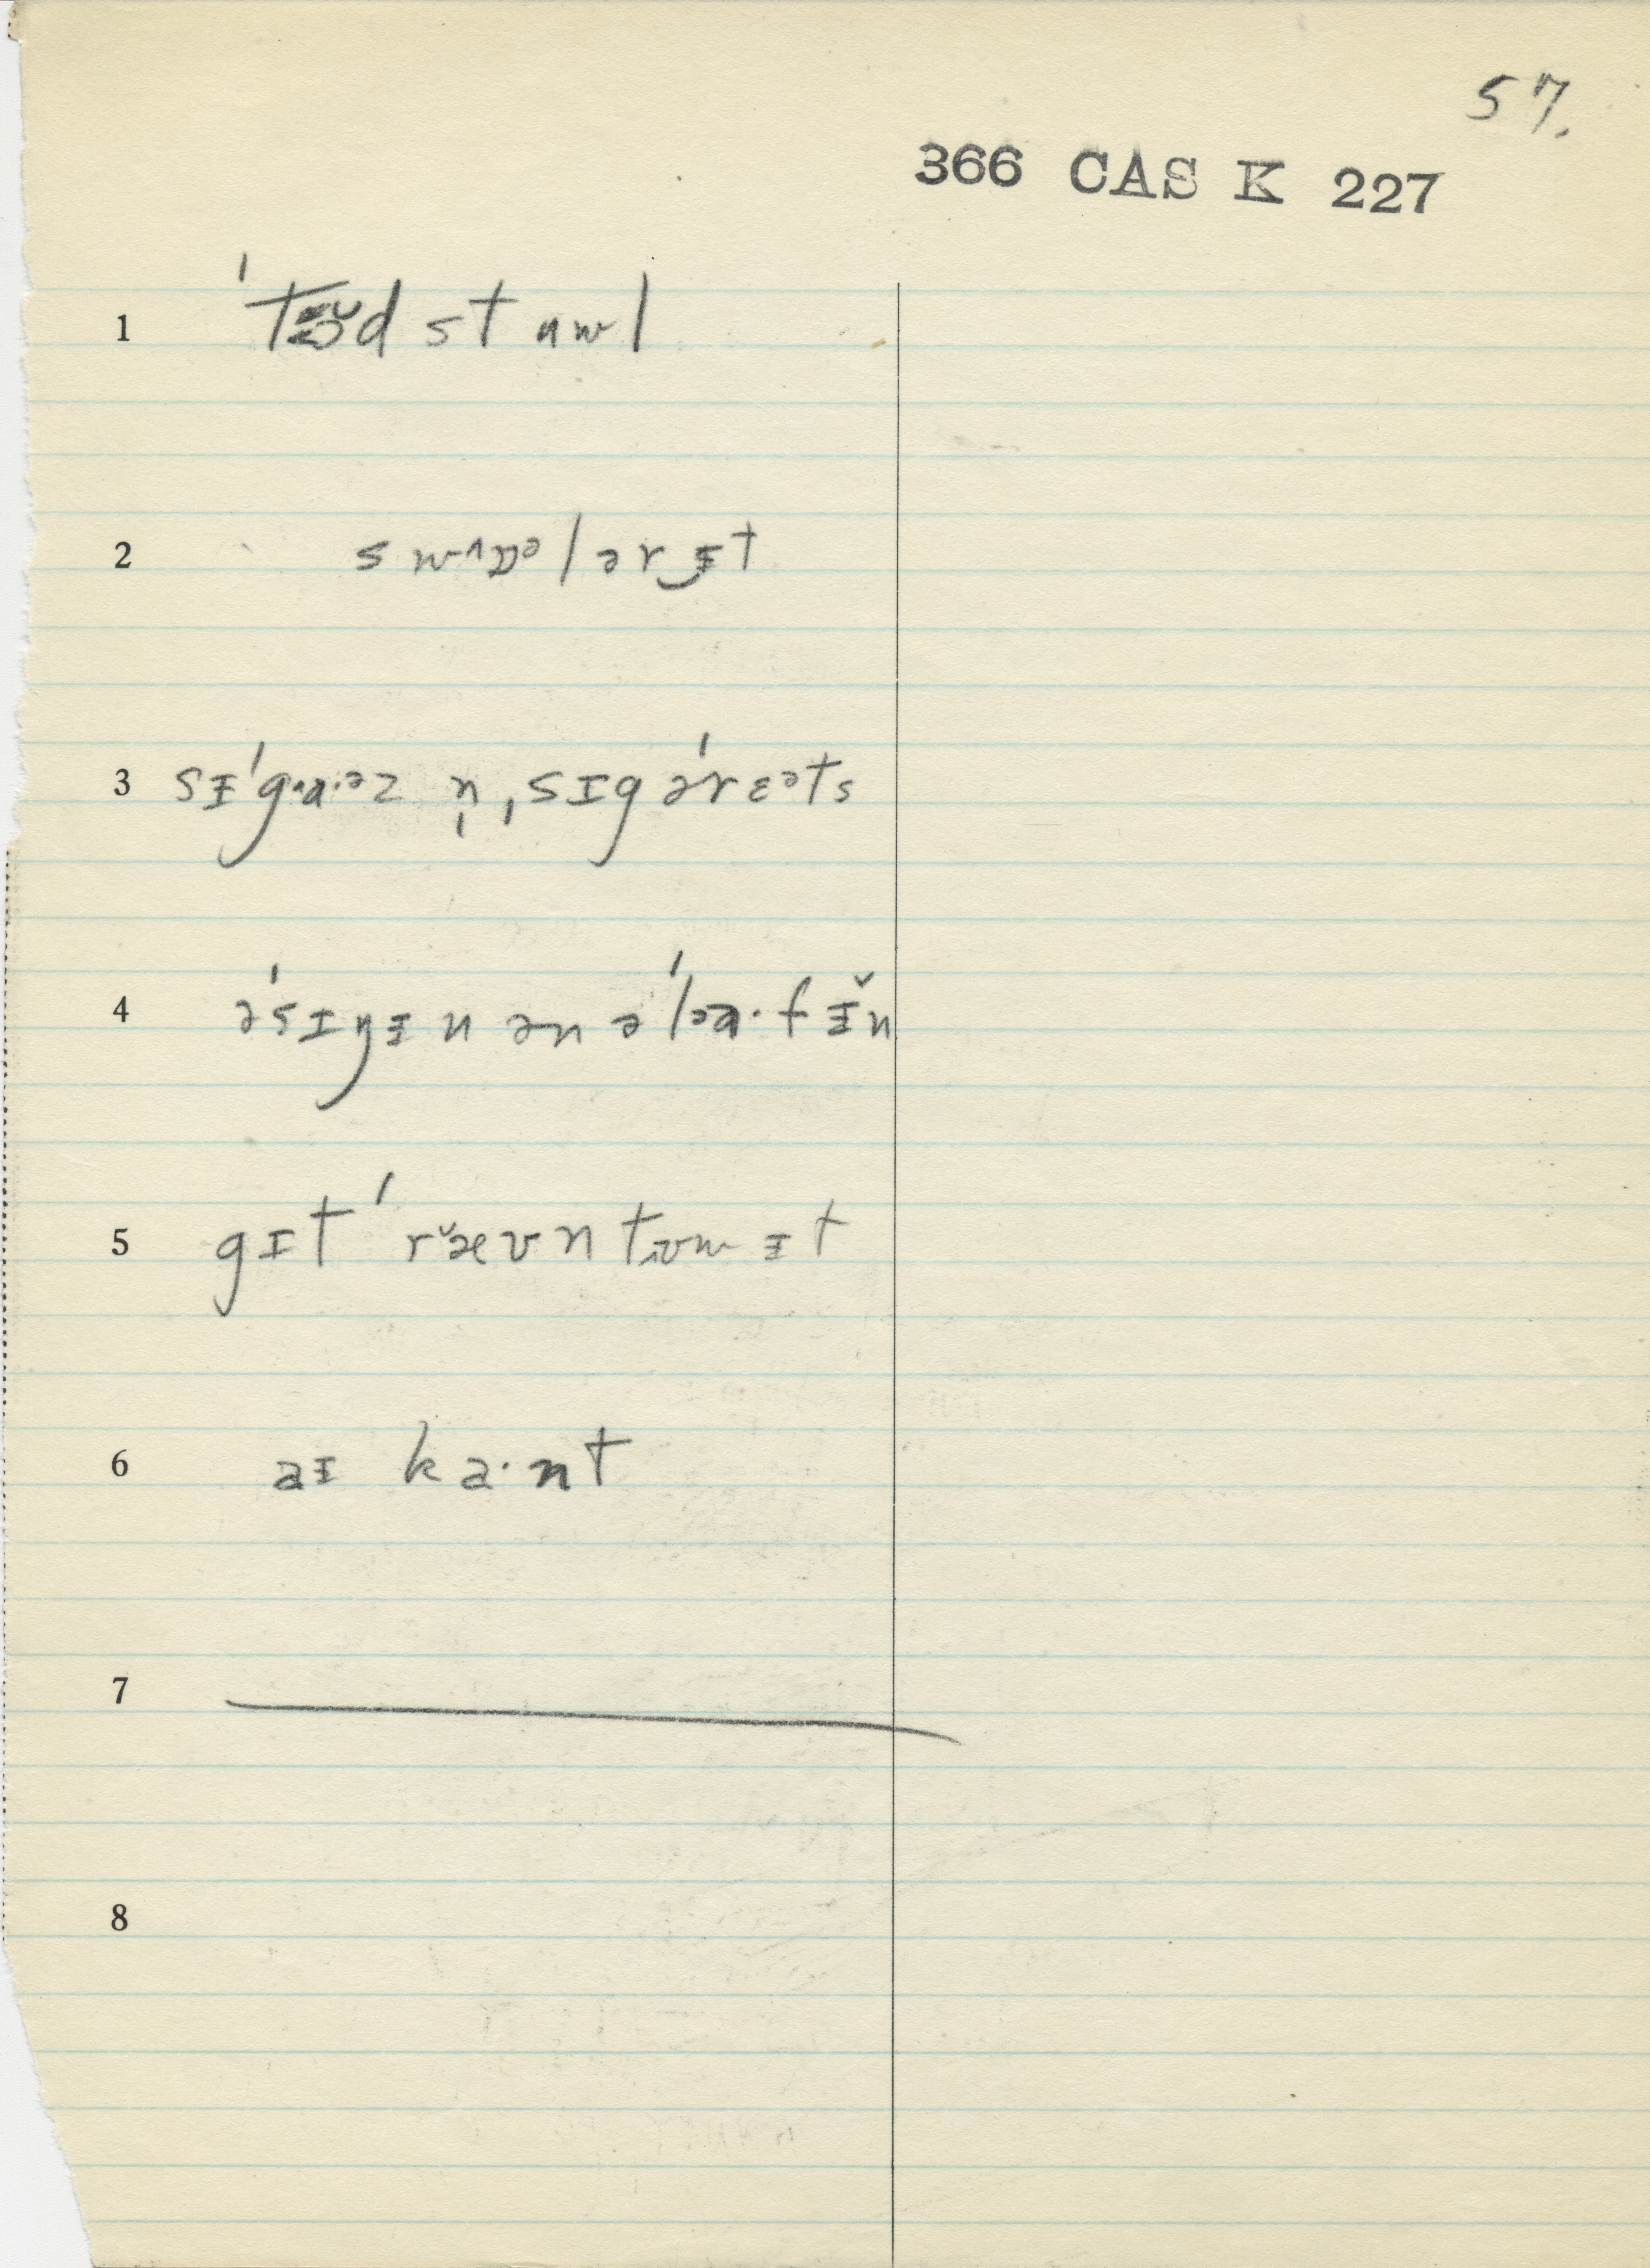 57.
366 CAS K 227
1 ˈtɵŭdstuwl
2 swʌɒᵊlərɪ̵t
3 sɪˈgɑ·əz n̩ ˌsɪgəˈrɛəts
4 əˈsɪŋɨn ən əˈlɐ·fɨ̆n
5 gɪt ˈræ̆vntʊwɨt
6 aɪ ka·nt
7
8